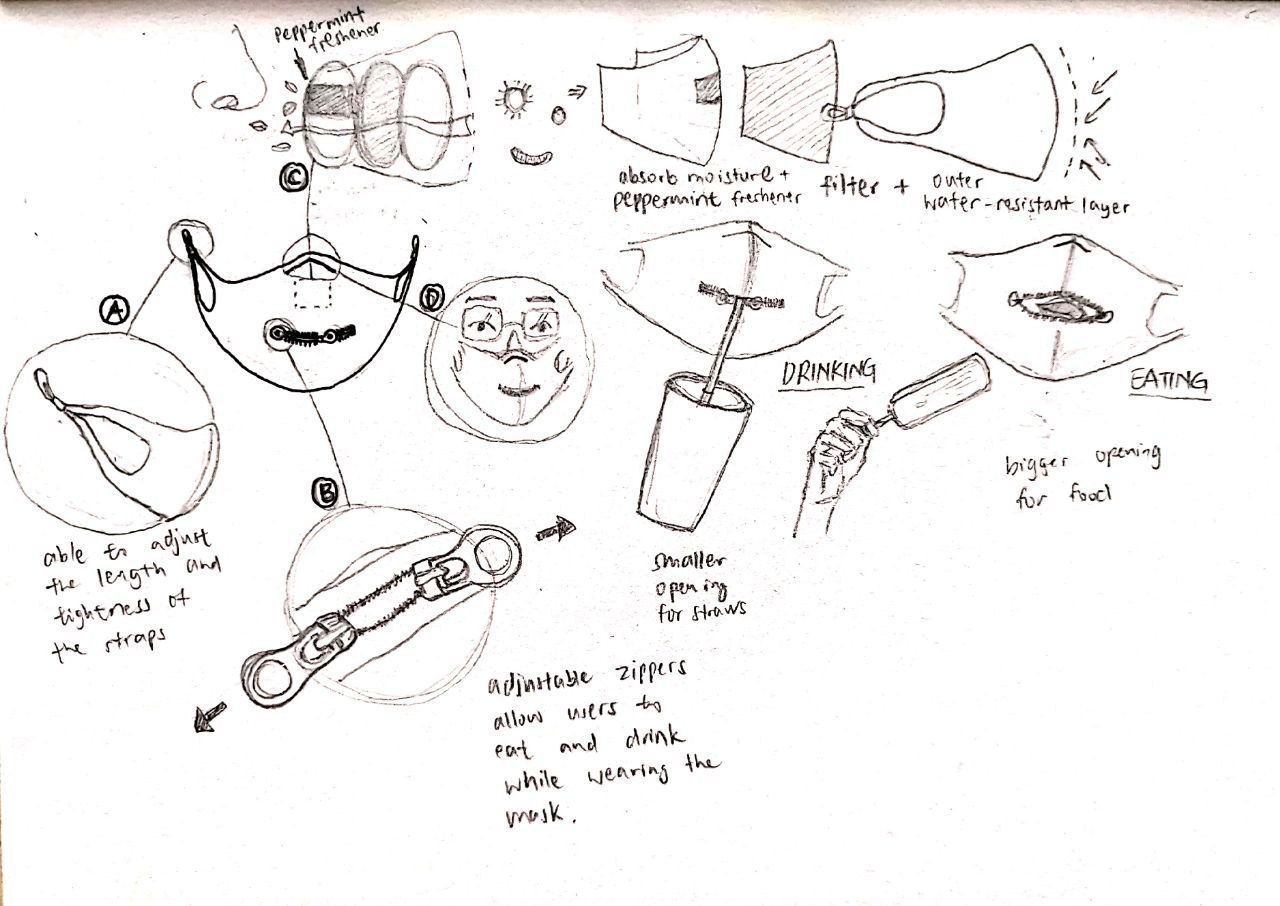 peppermint
freshener
C
absorb moisture +
peppermint freshener
filter +
outer
water-resistant layer
A
D
DRINKING
EATING
bigger opening
for food
B
able to adjust
the length and
tightness of
the straps
smaller
opening
for straws
adjustable zippers
allow users to
eat and drink
while wearing the
mask.